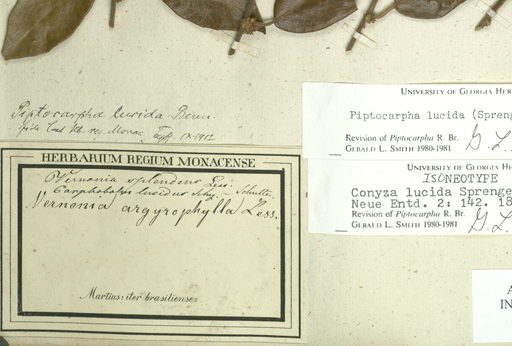 Piptocarpha lucida Benn.
fide Cat. Hb. reg. Monac.
IX.1912
HERBARIUM REGIUM MONACENSE
Vernonia splendens Less.
Carphobolus lucidus Schtz. Schultz.
Vernonia argyrophylla Less.
Martius: iter brasiliense
UNIVERSITY OF GEORGIA HER
Piptocarpha lucida (Spreng
Revision of Piptocarpha R. Br.
GERALD L. SMITH 1980-1981
G. L.
UNIVERSITY OF GEORGIA HER
ISONEOTYPE
Conyza lucida Sprenge
Neue Entd. 2: 142. 18
Revision of Piptocarpha R. Br.
GERALD L. SMITH 1980-1981
G. L.
A
IN